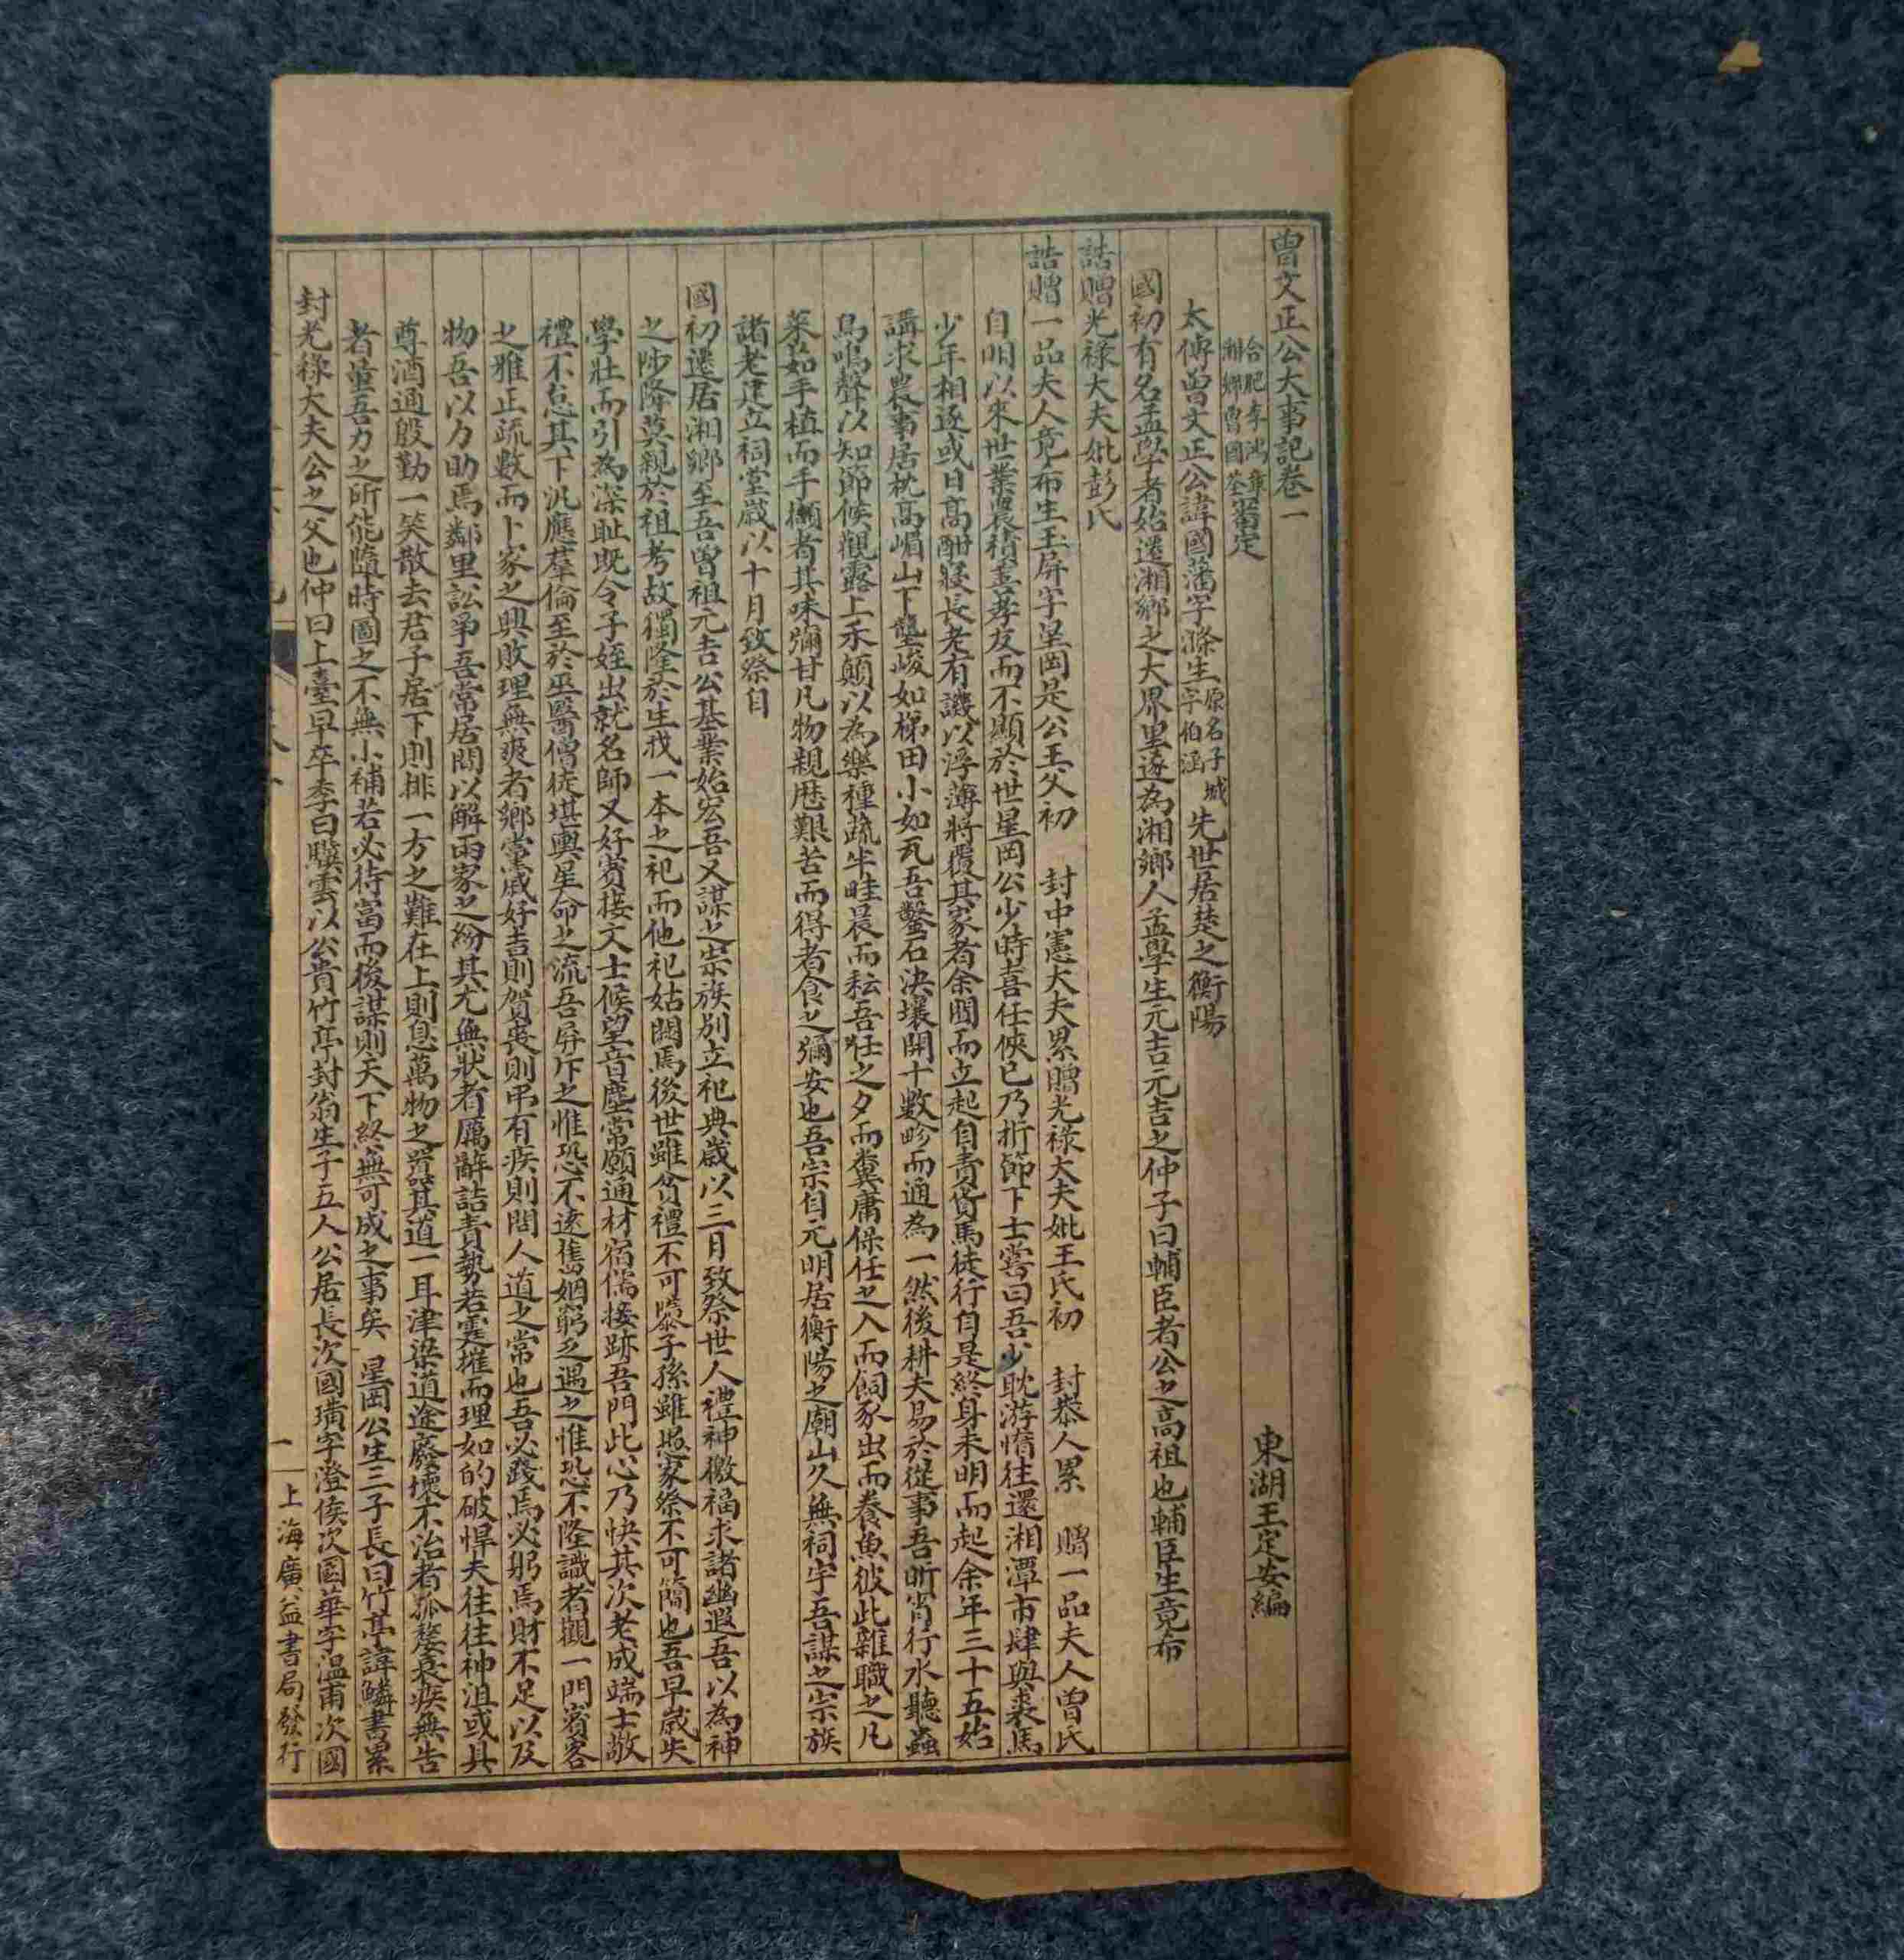 曾文正公大事記卷一
合肥李鴻章
湘鄉曾國荃審定
東湖王定安編
太傅曾文正公諱國藩字滌生原名子城字伯涵先世居楚之衡陽
國初有名孟學者始遷湘鄉之大界里遂為湘鄉人孟學生元吉元吉之仲子曰輔臣者公之高祖也輔臣生竟布
誥贈光祿大夫妣彭氏
誥贈一品夫人竟布生玉屏字星岡是公王父初 封中憲大夫累贈光祿大夫妣王氏初 封恭人累 贈一品夫人曾氏
自明以來世業農積善孝友而不顯於世星岡公少時喜任俠已乃折節下士嘗曰吾少耽游惰往還湘潭市肆與裘馬
少年相逐或日高酣寢長老有譏以浮薄將覆其家者余聞而立起自責貨馬徒行自是終身未明而起余年三十五始
講求農事居枕高嵋山下壟峻如梯田小如瓦吾鑿石決壤開十數畛而通為一然後耕夫易於從事吾昕宵行水聽蟲
鳥鳴聲以知節候觀露上禾顛以為樂種蔬半畦晨而耘吾任之夕而糞庸保任之入而飼豕出而養魚彼此雜職之凡
菜茹手植而手擷者其味彌甘凡物親歷艱苦而得者食之彌安也吾宗自元明居衡陽之廟山久無祠宇吾謀之宗族
諸老建立祠堂歲以十月致祭自
國初遷居湘鄉至吾曾祖元吉公基業始宏吾又謀之宗族別立祀典歲以三月致祭世人禮神徼福求諸幽遐吾以為神
之陟降莫親於祖考故獨隆於生我一本之祀而他祀姑闕焉後世雖貧禮不可隳子孫雖愚家祭不可簡也吾早歲失
學壯而引為深恥既令子姪出就名師又好賓接文士候望音塵常願通材宿儒接跡吾門此心乃快其次老成端士敬
禮不怠其下汎應羣倫至於巫醫僧徒堪輿星命之流吾屏斥之惟恐不遠舊姻窮乏遇之惟恐不隆識者觀一門賓客
之雅正疏數而卜家之興敗理無爽者鄉黨戚好吉則賀喪則弔有疾則問人道之常也吾必踐焉必躬焉財不足以及
物吾以力助焉鄰里訟爭吾常居間以解兩家之紛其尤無狀者厲辭詰責勢若霆摧而理如的破悍夫往往神沮或具
尊酒通殷勤一笑散去君子居下則排一方之難在上則息萬物之囂其道一耳津梁道途廢壞不治者孤嫠衰疾無告
者量吾力之所能隨時圖之不無小補若必待富而後謀則天下終無可成之事矣 星岡公生三子長曰竹亭諱麟書累
封光祿大夫公之父也仲曰上臺早卒季曰驥雲以公貴竹亭封翁生子五人公居長次國潢字澄侯次國華字溫甫次國
一
上海廣益書局發行